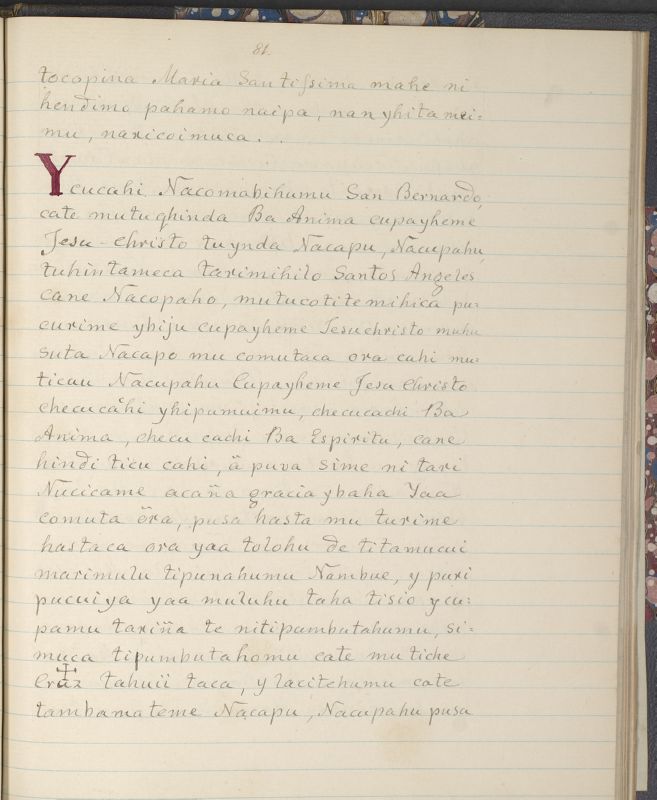 81.
tocopina Maria Santissima mahe ni
hendimo pahamo naipa, nan yhitamei=
mu, naricoimuca. . .
Ycucahi Nacomabihumu San Bernardo,
cate mutuqhinda Ba Anima cupayheme
Jesu-Christo tuynda Nacapu, Nacupahu,
tuhintameca tarimihilo Santos Angeles
cane Nacopaho, mutucotitemihica pu=
curime ybiju cupayheme Jesuchristo muhu
suta Nacapo mu comutaca ora cahi mu=
ticuu Nacupahu Cupayheme Jesu Christo
checucachi yhipumuimu, checucachi Ba
Anima, checu cachi Ba Espiritu, cane
hindi ticu cahi, ä puva sime ni tari
Nucicame acaña gracia ybaha Yaa
comuta öra, pusa hasta mu turime
hastaca ora yaa tolohu de titamucui
marimulu tipunahumu Nambue, y puri
pucuiya yaa muluhu taha tisio ycu=
pamu tariña te nitipumbutahumu, si=
muca tipumbutahomu cate mutiche
Cruz tahuii taca, y lacitehumu cate
tambamateme Nacapu, Nacupahu pusa